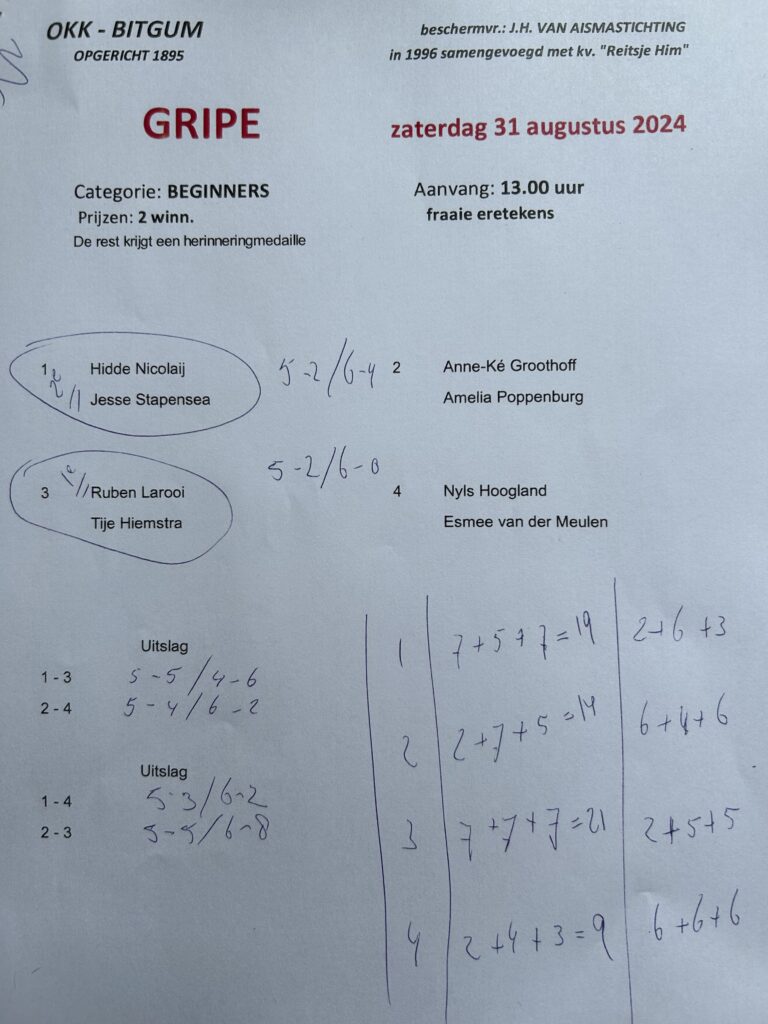 OKK - BITGUM
OPGERICHT 1895
beschermvr.: J.H. VAN AISMASTICHTING
in 1996 samengevoegd met kv. "Reitsje Him"
GRIPE
zaterdag 31 augustus 2024
Categorie: BEGINNERS
Prijzen: 2 winn.
De rest krijgt een herinneringmedaille
Aanvang: 13.00 uur
fraaie eretekens
1 Hidde Nicolaij 5-2/6-4 2 Anne-Ké Groothoff
2e Jesse Stapensea Amelia Poppenburg
3 1e Ruben Larooi 5-2/6-0 4 Nyls Hoogland
Tije Hiemstra Esmee van der Meulen
Uitslag
1 - 3 5-5/4-6
2 - 4 5-4/6-2
Uitslag
1 - 4 5-3/6-2
2 - 3 5-5/6-8
1 7+5+7=19 2+6+3
2 2+7+5=14 6+4+6
3 7+7+7=21 2+5+5
4 2+4+3=9 6+6+6